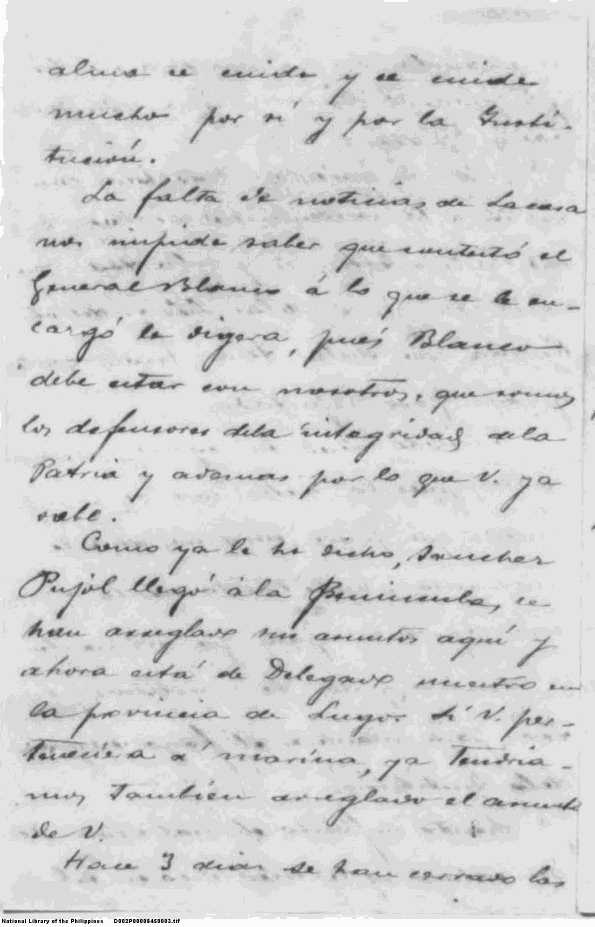 alma se cuide y se cuide
mucho por sí y por la Insti-
tución.
La falta de noticias de Lacasa
nos impide saber que contestó el
General Blanco á lo que se le en-
cargó le digera, pues Blanco
debe estar con nosotros, que somos
los defensores dela integridad dela
Patria y ademas por lo que V. ya
sabe.
Como ya le he dicho, Sanchez
Pujól llegó á la Peninsula, se
han arreglado sus asuntos aquí y
ahora está de Delegado nuestro en
la provincia de Lugo. Si V. per-
teneciera á marina, ya tendria-
mos tambien arreglado el asunto
de V.
Hace 3 dias se han cerrado las
National Library of the Philippines D002P00006450003.tif